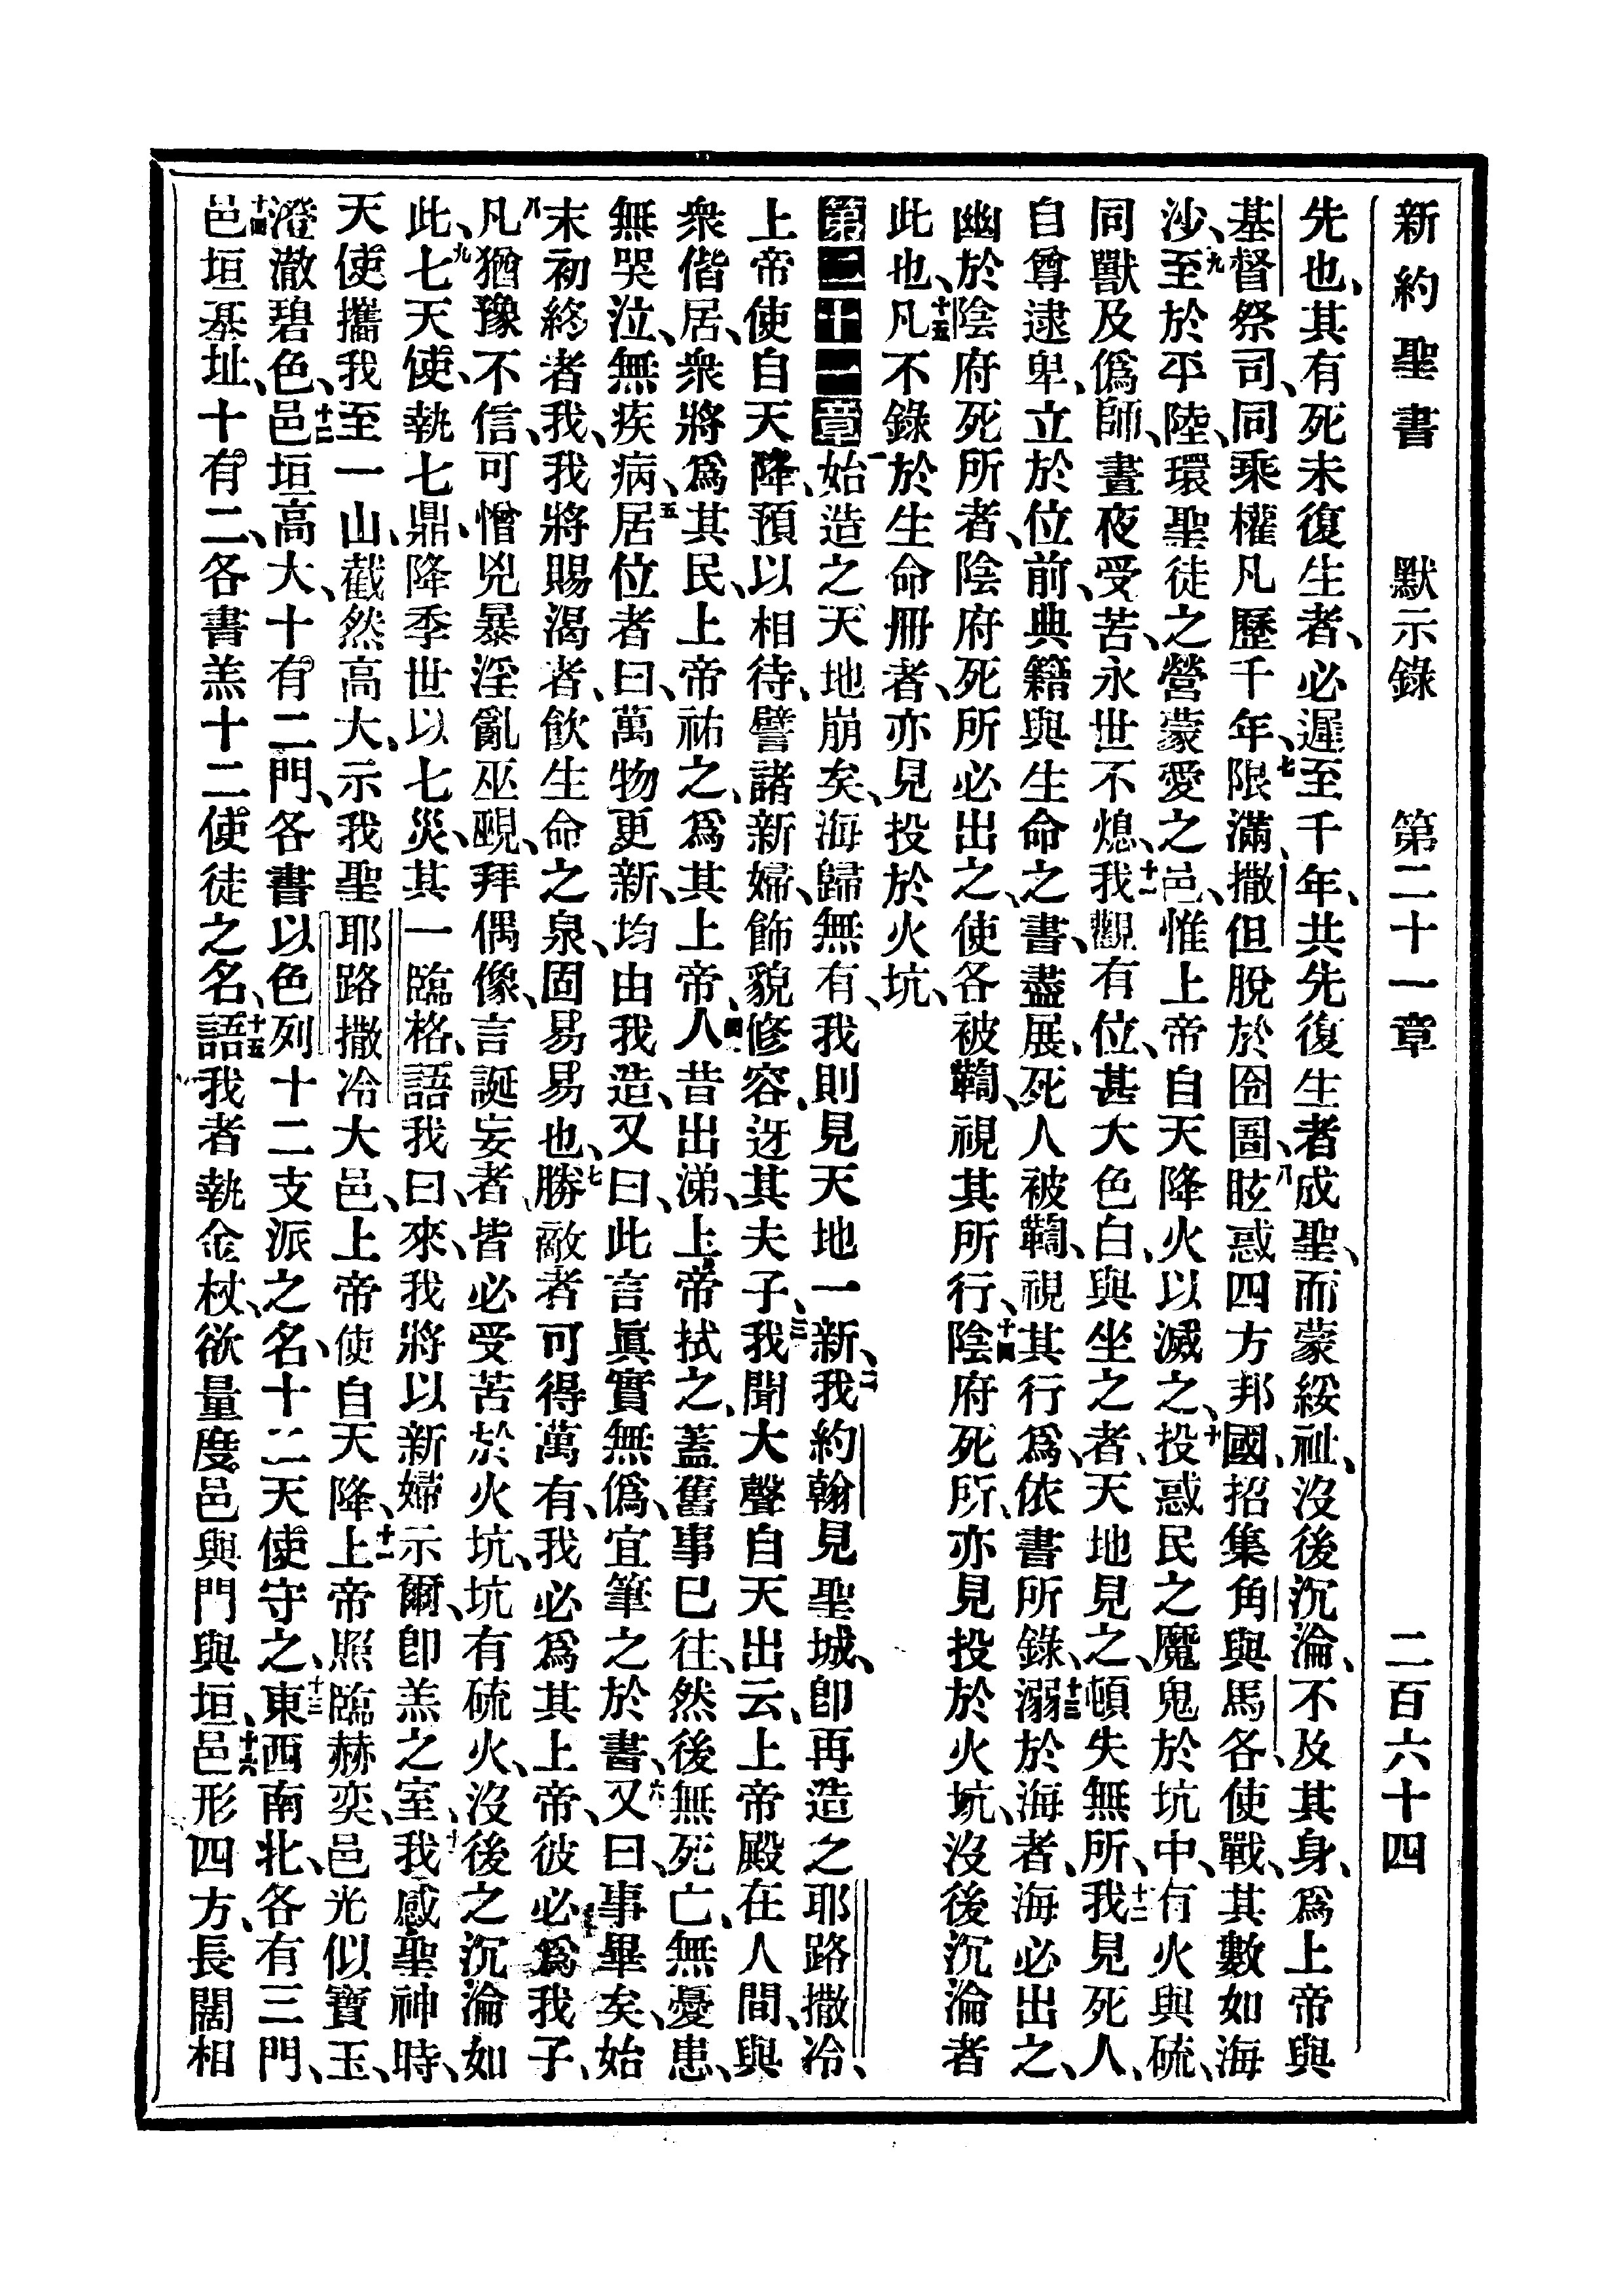 新約聖書 默示錄 第二十一章 二百六十四
先也、其有死未復生者、必遲至千年、共先復生者成聖、而蒙綏祉、沒後沉淪、不及其身、爲上帝與
基督祭司、同乘權凡歷千年、七限滿、撒但脫於囹圄、八眩惑四方邦國、招集角與馬各、使戰、其數如海
沙、九至於平陸、環聖徒之營、蒙愛之邑、惟上帝自天降火以滅之、十投惑民之魔鬼於坑中、有火與硫、
同獸及僞師、晝夜受苦、永世不熄、十一我觀有位、甚大色白、與坐之者、天地見之、頓失無所、十二我見死人、
自尊逮卑、立於位前、典籍與生命之書、盡展、死人被鞫、視其行爲、依書所錄、十三溺於海者、海必出之、
幽於陰府死所者、陰府死所必出之、使各被鞫、視其所行、十四陰府死所、亦見投於火坑、沒後沉淪者
此也、十五凡不錄於生命冊者、亦見投於火坑、
第二十一章 一始造之天地崩矣、海歸無有、我則見天地一新、二我約翰見聖城、卽再造之耶路撒冷、
上帝使自天降、預以相待、譬諸新婦、飾貌修容、迓其夫子、三我聞大聲自天出云、上帝殿在人間、與
衆偕居、衆將爲其民、上帝祐之、爲其上帝、四人昔出涕、上帝拭之、蓋舊事已往、然後無死亡、無憂患、
無哭泣、無疾病、五居位者曰、萬物更新、均由我造、又曰、此言眞實無僞、宜筆之於書、六又曰、事畢矣、始
末初終者我、我將賜渴者、飲生命之泉、固易易也、七勝敵者可得萬有、我必爲其上帝、彼必爲我子、
八凡猶豫不信、可憎兇暴淫亂巫覡、拜偶像、言誕妄者、皆必受苦於火坑、坑有硫火、沒後之沉淪如
此、九七天使、執七鼎、降季世以七災、其一臨格、語我曰、來、我將以新婦示爾、卽羔之室、十我感聖神時、
天使攜我至一山、截然高大、示我聖耶路撒冷大邑、上帝使自天降、十一上帝照臨赫奕、邑光似寶玉、
澄澈碧色、十二邑垣高大、十有二門、各書以色列十二支派之名、十二天使守之、十三東西南北、各有三門、
十四邑垣基址、十有二、各書羔十二使徒之名、十五語我者執金杖、欲量度邑與門與垣、十六邑形四方、長闊相